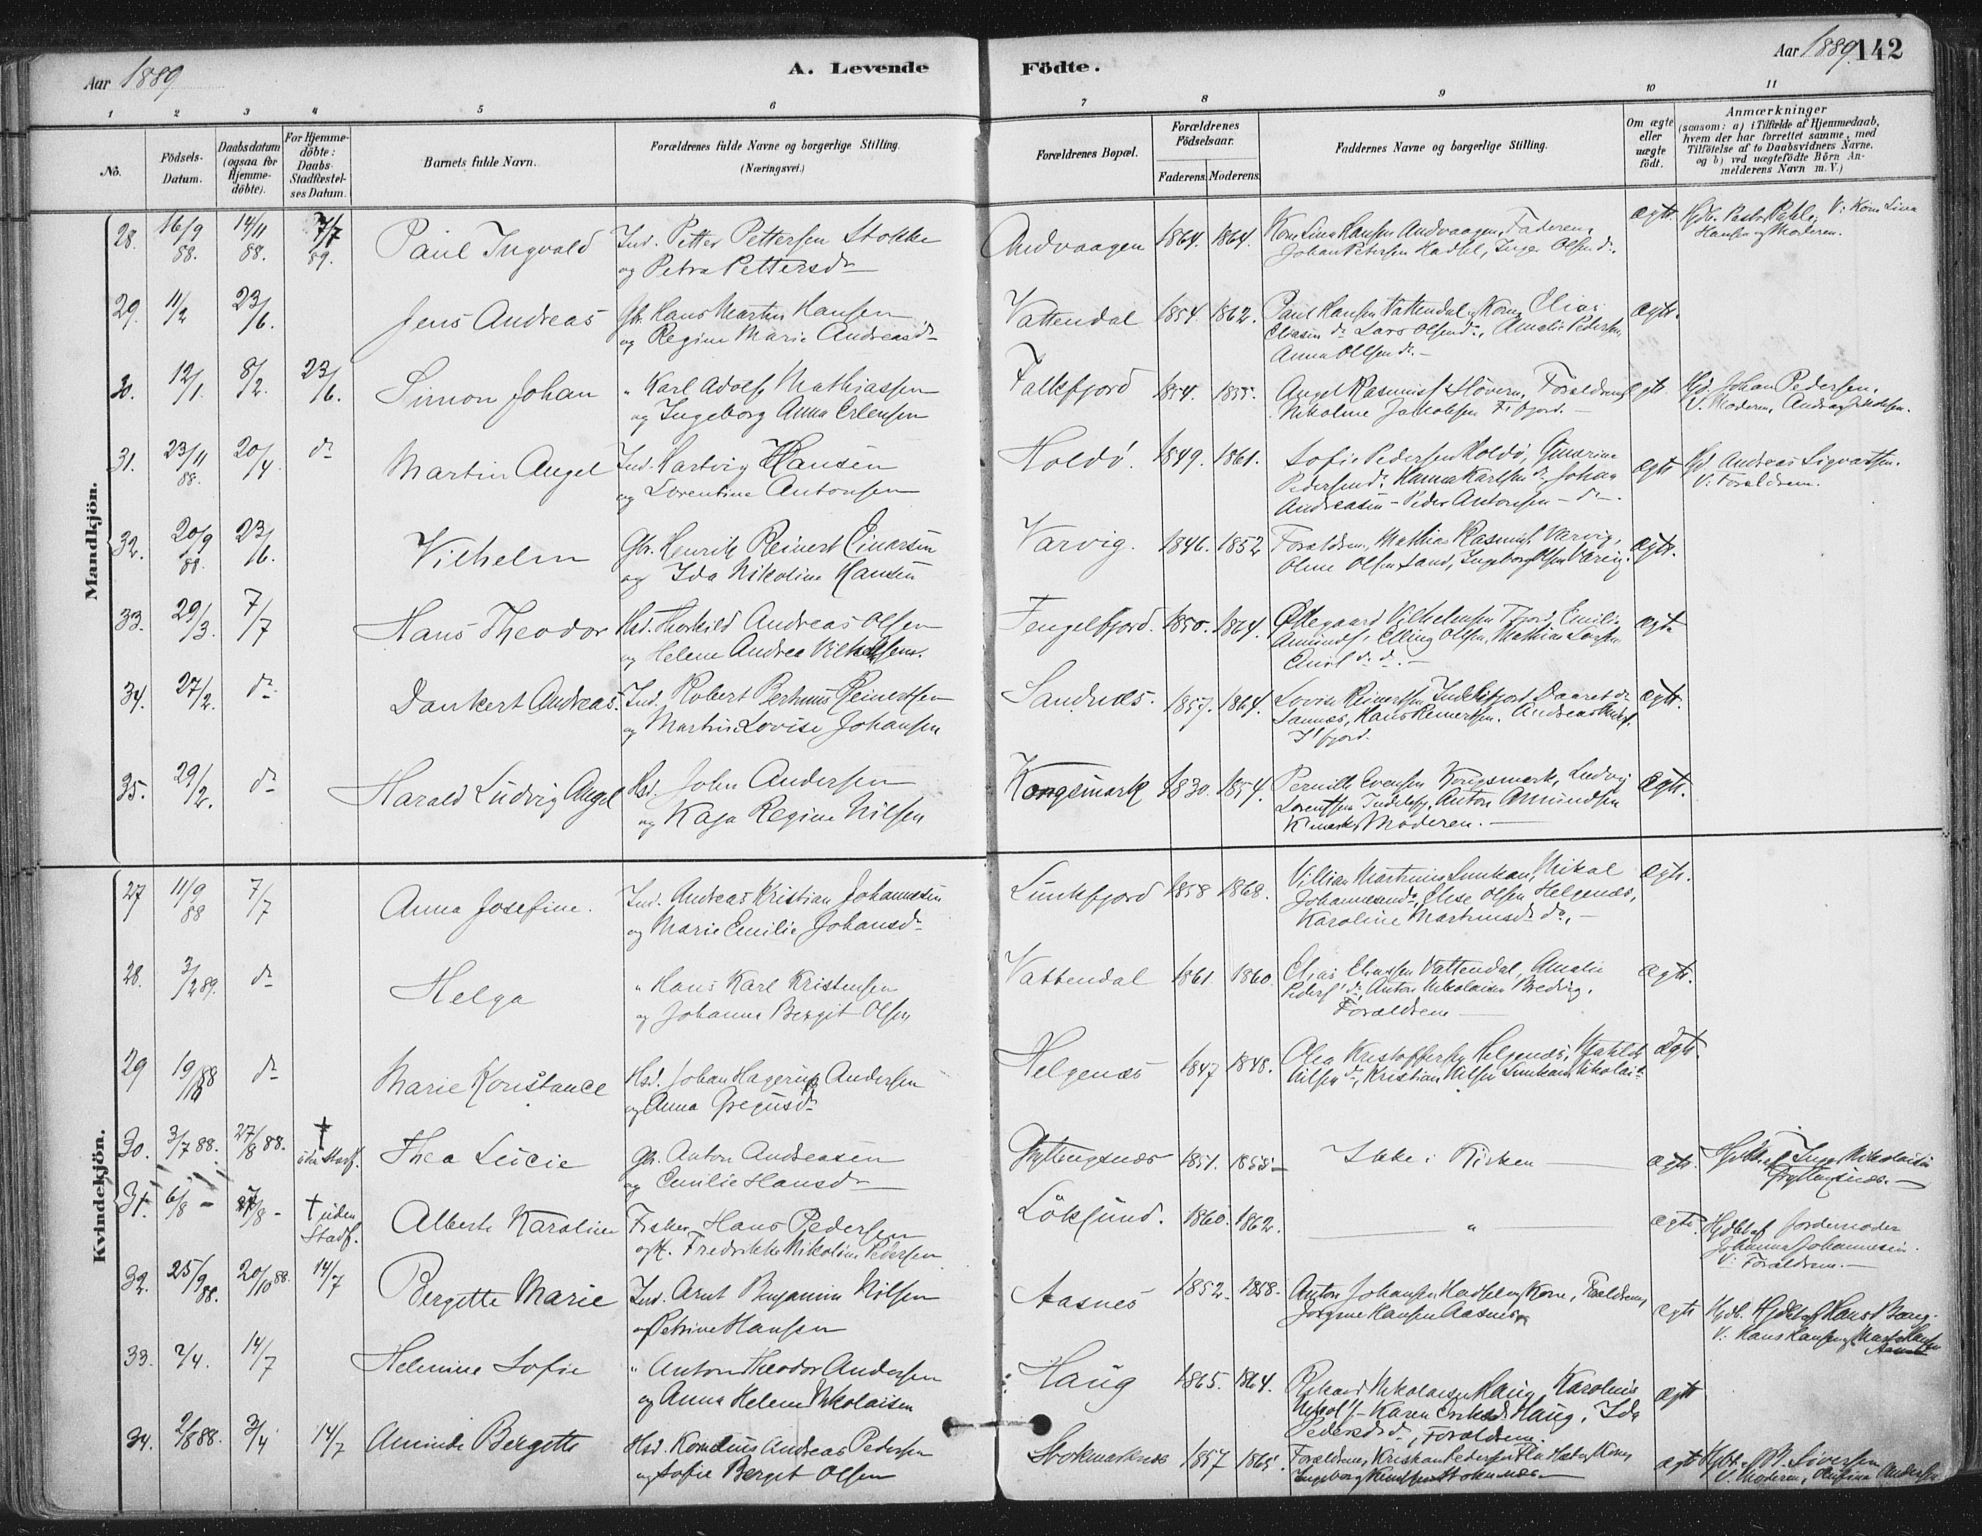 Aar 1889
A. Levende
Födte.
Aar 1889. 142
1 2 3 4 5 6 7 8 9 10 11
No.
Födsels-
Datum.
Daabsdatum
(ogsaa for
Hjemme-
döbte).
For Hjemme-
döbte:
Daabs-
Stadfæstel-
ses Datum.
Barnets fulde Navn.
Forældrenes fulde Navne og borgerlige Stilling.
(Næringsvei.)
Forældrenes Bopæl.
Forældrenes
Födselsaar.
Faderens. Moderens.
Faddernes Navne og borgerlige Stilling.
Om ægte
eller
uægte
født.
Anmærkninger
(saasom: a) i Tilfælde af Hjemmedaab,
hvem der har forrettet samme, med
Tilföielse af to Daabsvidners Navne,
og b) ved uægtefödte Börn An-
melderens Navn m. V.)
Mandkjön.
28. 16/9 88. 14/11 88. 7/7 89. Paul Ingvald Ind. Petter Pettersen Stokke
og Petra Pettersdr
Andvaagen 1864. 1864. Kone Lina Hansen Andvaagen, Faderen,
Johan Petersen Hadsel, Inger Olsen do. ægte. Hjdb. Pastor V: Kone Lina
Hansen og Moderen.
29. 11/2 23/6. Jens Andreas Gbr. Hans Martin Hansen
og Regine Marie Andreasdr
Vattendal 1854. 1862. Paul Hansen Vattendal og Kone, Elias
Eliasen do Lars Olsen do, Amalie Pedersen,
Anna Olsen do.— ægte.
30. 12/1. 8/2. 23/6. Simon Johan " Karl Adolf Mathiassen
og Ingeborg Anna Erlensen
Falkfjord 1854. 1855. Angel Rasmus Forældrene
Nikoline Jakobsen F.fjord.— ægte. Hjd. Johan Pedersen.
V. Moderen, Andrea Jakobsen.
31. 23/11 88. 20/4. do Martin Angel Ind. Hartvig Hansen
og Lorentine Antonsen
Holdö. 1849. 1861. Sofie Pedersen Holdö,
Pedersen do, Hanna Karlsen do, Johan
Andreasen — Peder Antonsen — do—. ægte Hjd. Andreas Sigvartsen.
V: Forældrene.
32. 20/9 88 23/6. Vilhelm Gbr. Henrik Reinert Einarsen
og Ida Nikoline Hansen
Varvig. 1846. 1852 Forældrene, Mathias Rasmus. Varvig,
Oline Olsen Sand, Ingeborg Olsen Varvig. ægte.
33. 29/3. 7/7 Hans Theodor Hsd. Thorkild Andreas Olsen
og Helene Andrea Vilhelmsen.
Fengelfjord. 1850. 1864. Ødegaard Vilhelmsen Fjord, Emilie
Amunds, Elling Olsen, Mathias Larsen
Emil do do.— ægte
34. 27/2. do Dankert Andreas. Ind. Robert Bertinus Reinertsen
og Martine Lovise Johansen
Sandnes. 1857. 1864. Lovise Reinertsen Daaret do
Sannæs, Hans Reinertsen. Andreas
fjord. ægte.
35. 29/2. do Harald Ludvig Angel Hsd. John Andersen
og Kaja Regine Nilsen
Kongsmark 1830. 1854. Pernille Evensen Kongsmark, Ludvig
Lorentsen Anton Amundsen
K.mark, Moderen.— ægte.
Kvindekjön.
27 11/9 88 7/7 Anna Josefine. Ind. Andreas Kristian Johannessen
og Marie Emilie Johansdr
Lunkfjord 1858 1868. Villian Martinus Lunkan, Mikal
Johannesen do, Elise Olsen Helgenæs,
Karoline Martinusdr do,— ægte.
28. 3/2 89. do Helga " Hans Karl Kristensen
og Johanna Bergit Olsen
Vattendal 1861. 1860. Elias Eliassen Vattendal, Amalie
Peders do, Anton Nikolaisen Breding.
Forældrene — ægte.
29 19/10 88 do Marie Konstance Hsd. Johan Hagerup Andersen
og Anna Gregusdr
Helgenæs 1847 1848. Olea Kristoffersen Helgenæs, Matilde
Nilsen do, Kristian Nilsen Lunkan, Nikolai do ægte.
30. 3/7 88. 27/8 88. † uden Stadf. Thea Lucie Gb. Anton Andreasen
og Emilie Hansdr
Gryttingsnæs 1851. 1855— Ikke i Kirken — ægte. Inger Nikolaisen
Gryttingsnæs.—
31. 6/8 — 27/8 — † uden
Stadf. Alberte Karoline Fisker Hans Pedersen
og H. Fredrikke Nikoline Pedersen
Löksund. 1860. 1862. — " ægte. Hjdbt af Jordemoder
Johanna Johannesen.
V: Forældrene.—
32. 25/9 88. 20/10 88. 14/7 Bergitte Marie Ind. Arnt Benjamin Nilsen
og Petrine Hansen
Aasnes 1852. 1858. Anton Johansen Hadsel og Kone, Forældrene,
Jörgine Hansen Aasnes. ægte Hjdb. Hjdbt af Hans Bang.
V. Hans Hansen og Marte Hansen
33. 2/4. 14/7 Helmine Sofie " Anton Theodor Andersen
og Anna Helene Nikolaisen
Haug 1865. 1864. Rikard Nikolaisen Haug, Karoline
Nikol — Karen Haug. Ida
Pedersdr do, Forældrene. ægte
34. 2/8 88. 3/4 14/7 Aminda Bergitte Hsd. Kornelius Andreas Pedersen
og Sofie Bergit Olsen
Stokmarknæs 1857 1865. Forældrene, Kristian Pedersen Kone,
Ingeborg Knutsen Stokmnæs.— ægte Hjdbt. Siversen
V. Moderen, Andersen